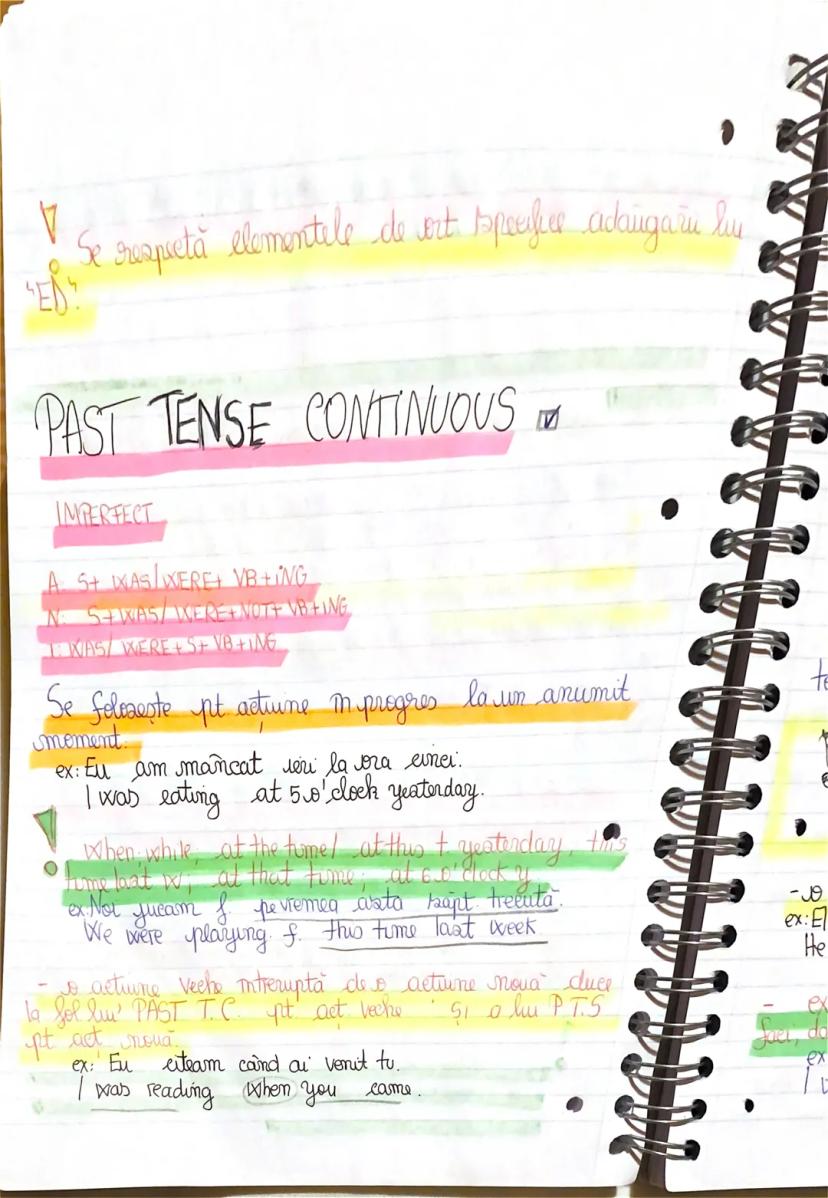 ! Se respectă elementele de ort specifice adăugării lui
"ED".
PAST TENSE CONTINUOUS
IMPERFECT
A: S+ WAS/WERE+ VB+ING
N: S+WAS/WERE+NOT+VB+ING
I: WAS/WERE+S+VB+ING
Se folosește pt acțiune în progres la un anumit
moment.
ex: Eu am mâncat ieri la ora cinci.
I was eating at 5 o'clock yesterday.
! When; while; at the time/ at this t yesterday, this
time last w; at that time; at 6 o'clock y.
ex: Noi jucam f. pe vremea asta săpt. trecută.
We were playing f. this time last week
- o acțiune veche întreruptă de o acțiune nouă duce
la fol lui PAST T.C. pt acț veche și a lui P.T.S
pt acț nouă.
ex: Eu citeam când ai venit tu.
I was reading when you came.
ex: E
He
- ex
faci, da
ex
I